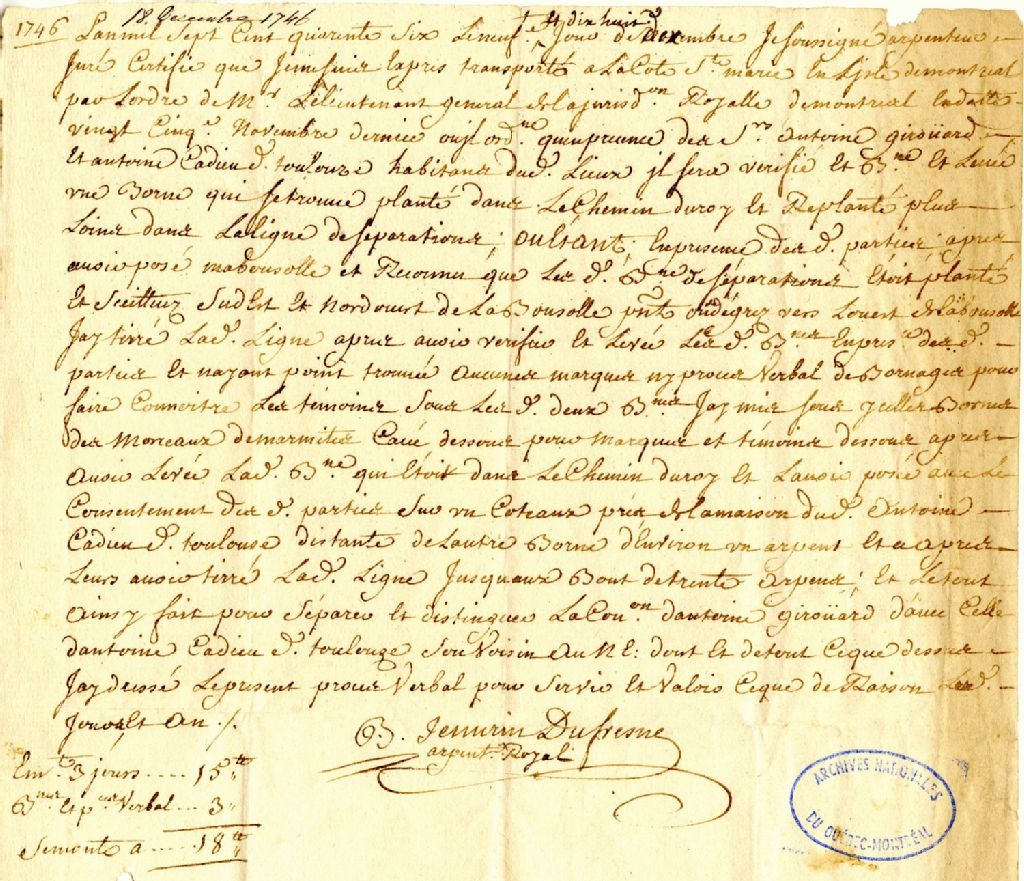 18. Decembre 1746
1746 Lanmil Sept Cent quarente Six Leneuf et dixhuit Jour de decembre Jesoussigné arpenteur
Juré Certifie que Jemesuis Expres transporté a LaCote Ste marie En Lisle demontreal
par Lordre de Mr Lelieutenant general de Lajurisdon Royalle demontreal Endatte
vingt Cinqe Novembre dernier ordne quenpresence des Srs antoine giroüard
Et antoine Cadieu dt toulouze habitans dud. Lieux jl sera verifié Et Bné Et Levée
vne Borne qui setrouve planté dans LeChemin duroy Et Replanté plus
Loins dans LaLigne deseparations; oultant; Enpresence des d. parties; apres
auoir posé maBousolle et Reconnu que Les d. Bne deséparations Etoit planté
Et Sceitture SudEst Et Nordouest de LaBousolle pnt vers Louest de Labousolle
Jay tirré Lad. Ligne apres auoir verifié Et Levée Les d. Bnes Enprese des d.
parties Et nayant point trouvé aucunes marques ny proces Verbal de Bornages pour
faire Connoitre Les témoins Sous Les d. deux Bnes Jay mis sous ycelles Bornes
des Morceaux demarmites Cavé dessous pour marques et témoins dessous apres
auoir Levée Lad. Bne qui Etoit dans LeChemin duroy Et Lauoir posée avec Le
Consentement des d. parties Sur vn Coteaux près de Lamaison dud. Antoine
Cadieu dt. toulouse distante deLautre Borne d'Environ vn arpent Et apres
Leurs auoir tirré Lad. Ligne Jusquaux Bout detrente arpens; Et Letout
ainsy fait pour Séparer Et distinguer LaCon.on dantoine giroüard d'avec Celle
dantoine Cadieu dt. toulouze Son Voisin au NE: dont Et detout Ceque dessus
Jay dressé Lepresent proces Verbal pour Servir Et Valoir Ceque de Raison Lesd.
Jours Et an ./.
B. Jenvrin Dufresne
arpentr Royal
Emt. 3 jours .... 15tt
Bnes Et pces Verbal ... 3"
Semonte a ..... 18tt
ARCHIVES NATIONALES
DU QUÉBEC-MONTRÉAL